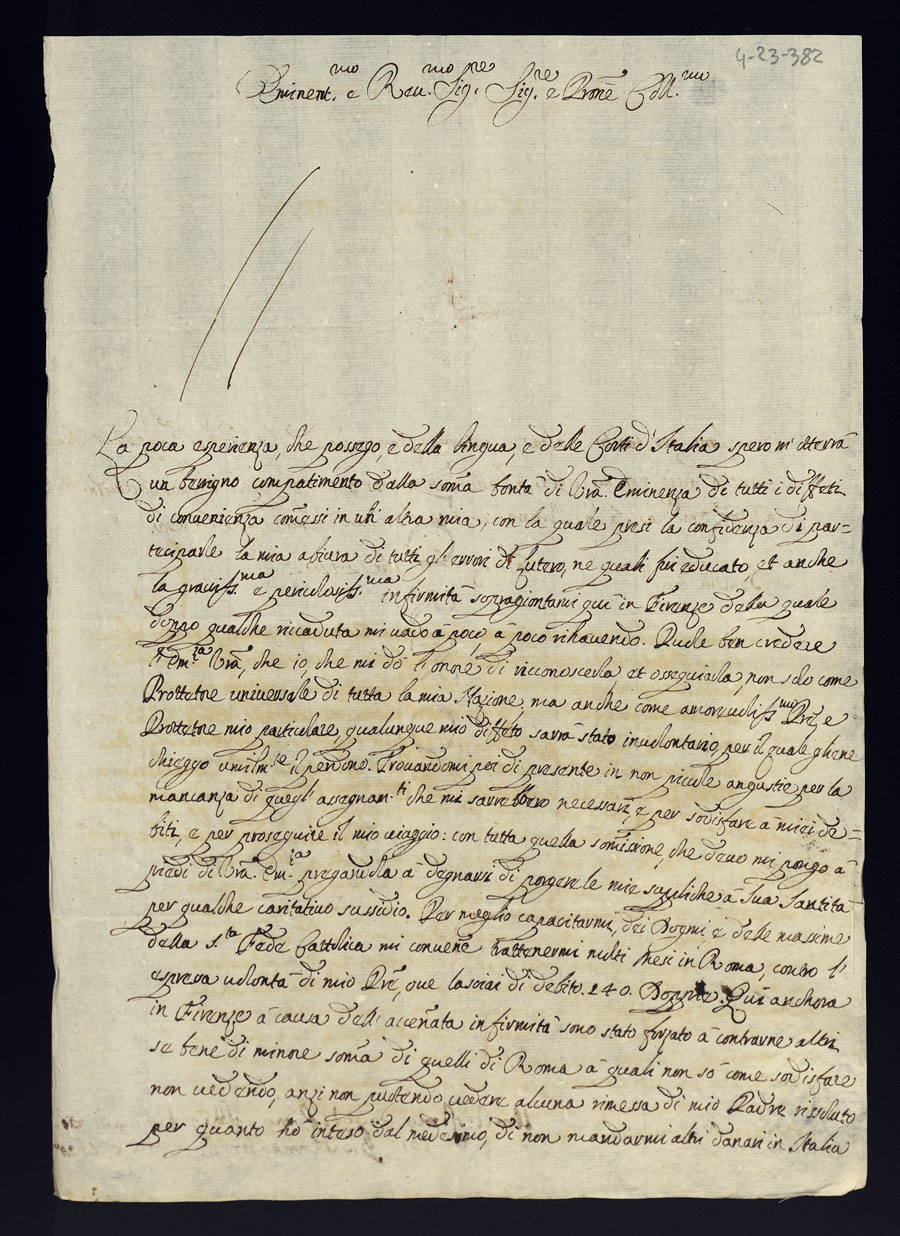 4-23-382
Eminent.mo e Reu.mo Sig.re Sig.re e Prone Coll.mo
La poca esperienza, che possego, e della lingua, e delle Corti d'Italia spero m' otterrà
un benigno compatimento dalla soma bontà di Vra. Eminenza di tutti i diffeti
di convenienza comessi in un' altra mia, con la quale presi la confidenza di par=
teciparle la mia abiura di tutti gl' errori di Lutero, ne quali fui educato, et anche
la graviss.ma e pericolosiss.ma infirmità sopragiontami qui in Firenze della quale
doppo qualche riccaduta mi vado à poco, à poco rihavendo. Puole ben credere
l' Em.za Vra, che io, che mi dò l' onore di riconoscerla et ossequiarla, non solo come
Prottetore universale di tutta la mia Nazione, ma anche come amorevoliss.mo Pre, e
Prottetore mio particolare, qualunque mio diffeto sarrà stato involontario, per il quale gliene
chieggo umilm.te il perdono. Trovandomi poi di presente in non piccole angustie per la
mancanza di quegl' assegnam.ti che mi sarrebbero necessarij, e per sodisfare à miei de=
biti, e per proseguire il mio viaggio: con tutta quella somissione, che devo mi pongo à
piedi di Vra. Em.za pregandola à degnarsi di porgere le mie suppliche à Sua Santità
per qualche caritativo sussidio. Per meglio capacitarmi, dei Dogmi, e delle massime
della S.ta Fede Cattolica mi convene trattenermi molti Mesi in Roma, contro l'
espressa volontà di mio Pre, ove lasciai di debito 240. Doppie. Quì anchora
in Firenze à causa dell' accenata infirmità sono stato forzato à contrarne altri
se bene di minore soma di quelli di Roma à quali non sò come sodisfare
non vedendo, anzi non potendo vedere alcuna rimessa di mio Padre rissoluto
per quanto hò inteso dal medesimo, di non mandarmi altri danari in Italia